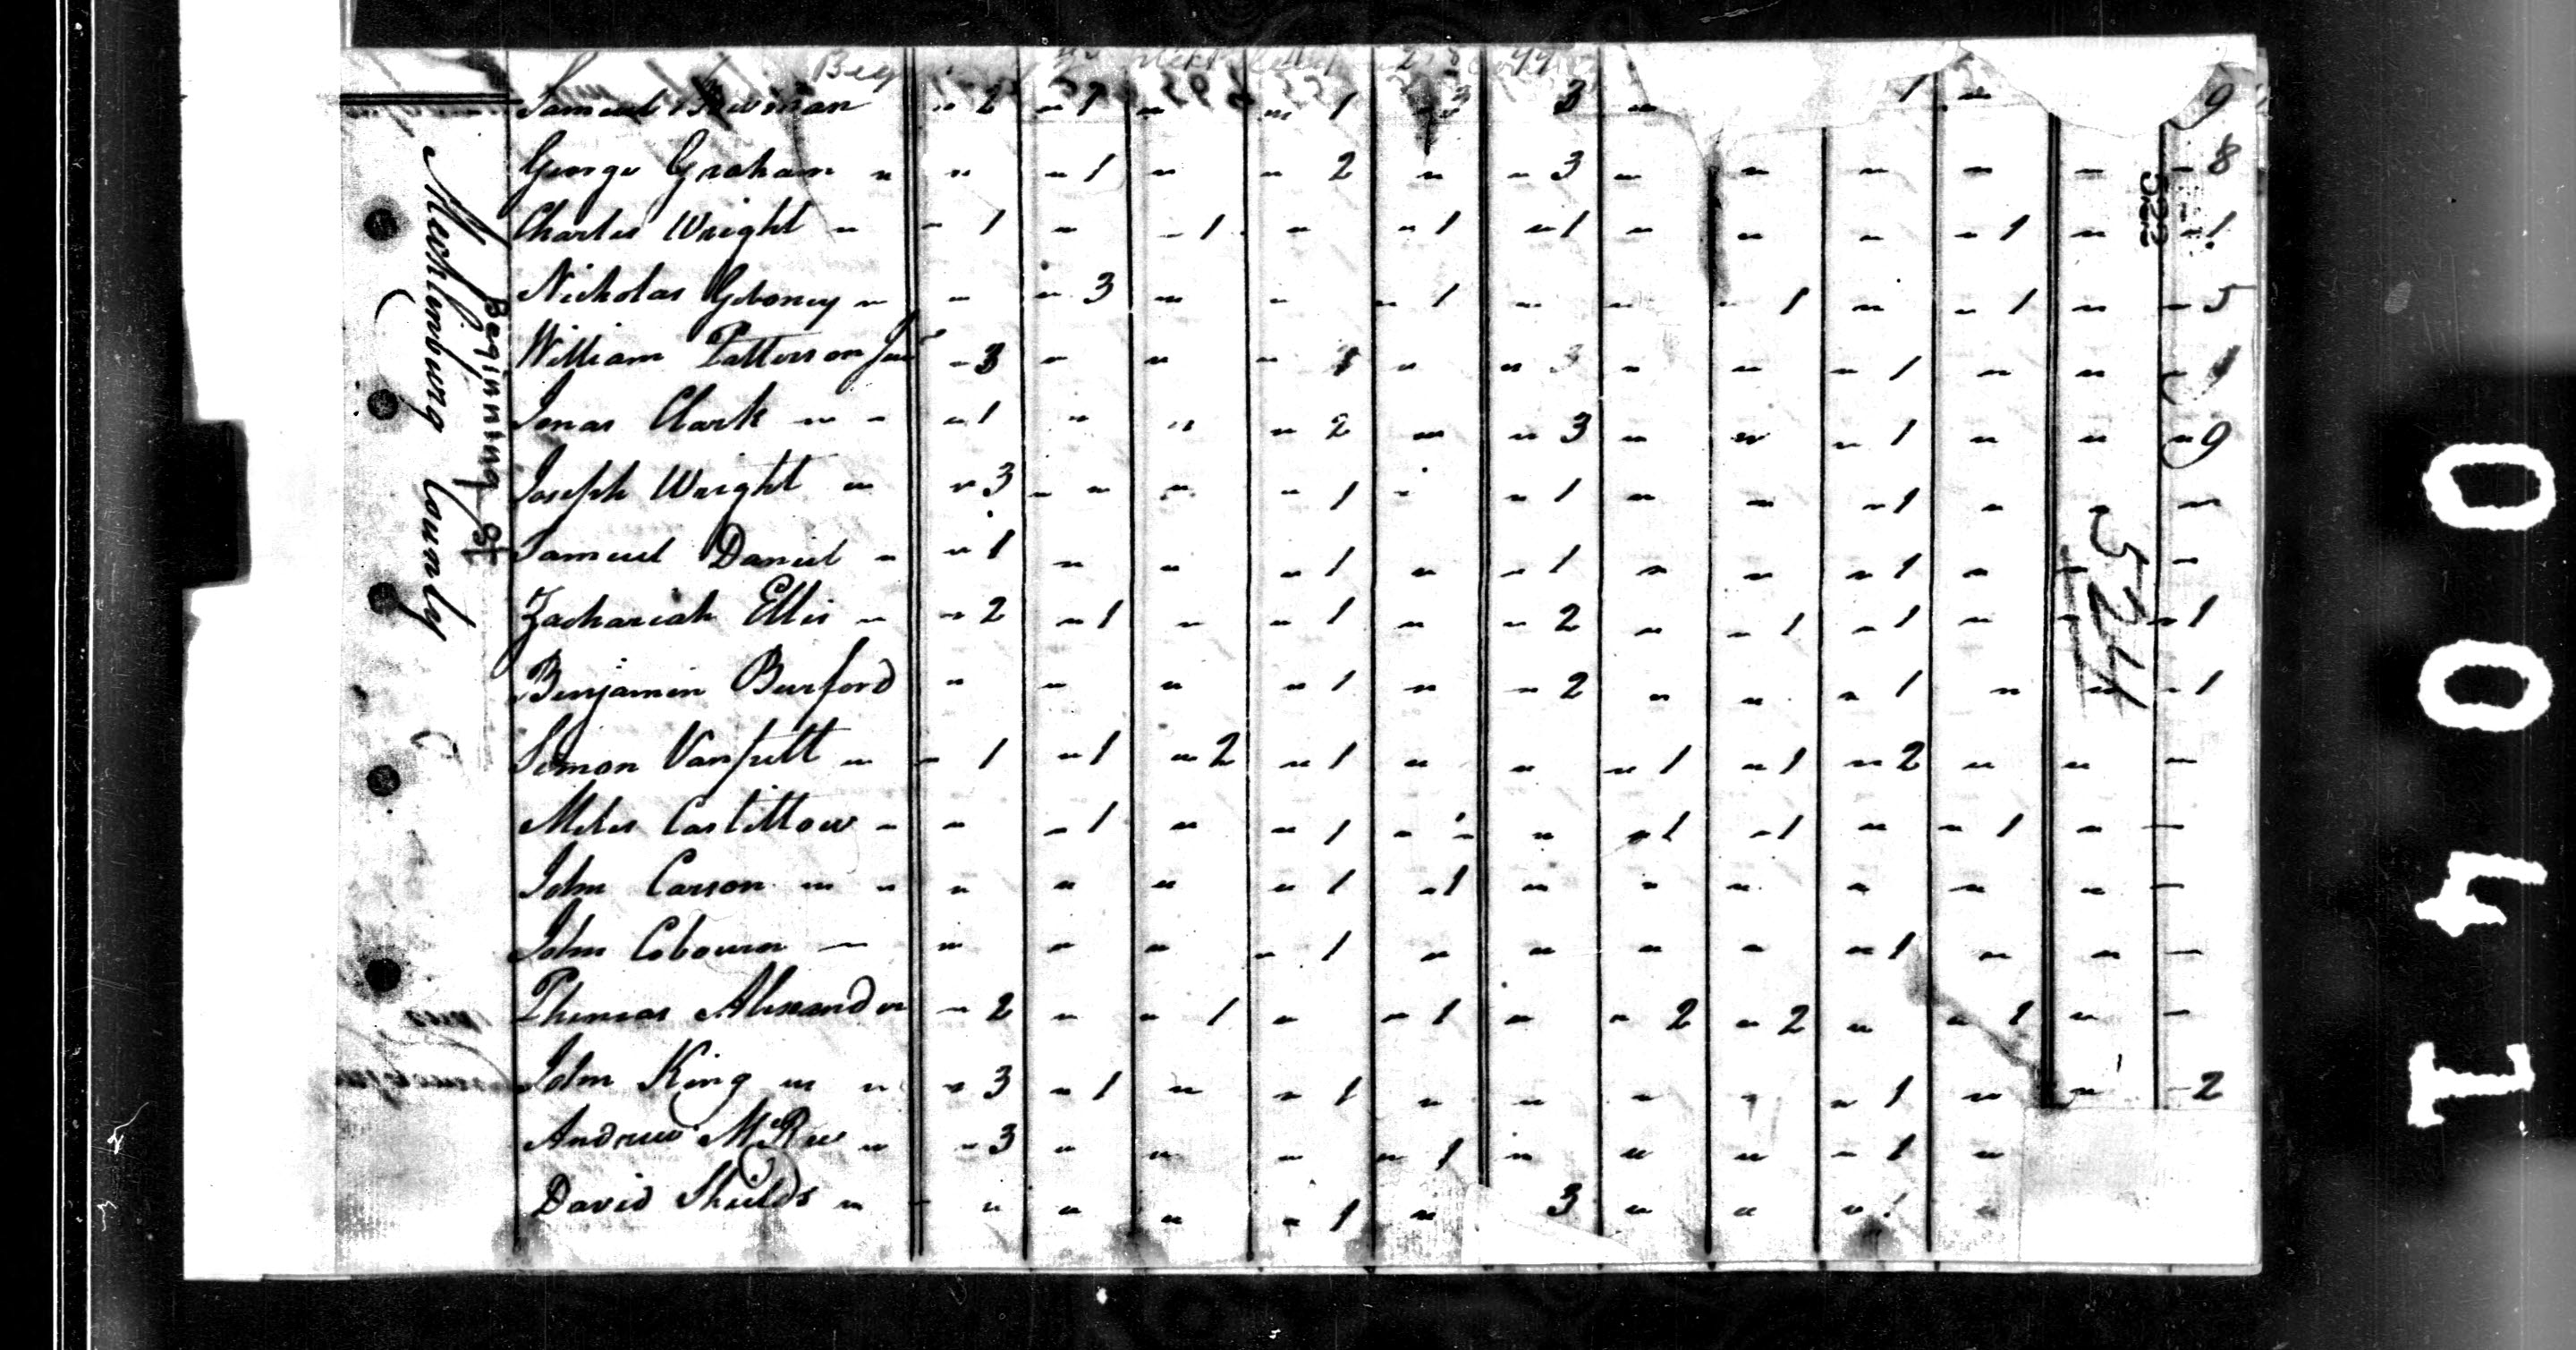 Beg
Samuel Bowman " 2 " 1 " " 1 " 3 3 " 1 " 9
George Graham " " " 1 " " 2 " " 3 " " " " " " 8
Charles Wright " " 1 " " 1 " " 1 " 1 " " " " 1 " " 1
Nicholas Giboney " " " 3 " " " 1 " " " 1 " " 1 " " 5
William Patterson Junr " 3 " " " 1 " " 3 " " " 1 " "
Jonas Clark " " " 1 " " " 2 " " 3 " " " 1 " " " 9
Joseph Wright " " 3 " " " " 1 " " 1 " " " 1 " " "
Samuel Daniel " " 1 " " " 1 " " 1 " " " 1 " " "
Zachariah Ellis " " 2 " 1 " " 1 " " 2 " " 1 " 1 " " " 1
Benjamin Burford " " " " 1 " " 2 " " " 1 " " " 1
Simon Vanpelt " " 1 " 1 " 2 " 1 " " " 1 " 1 " 2 " " "
Miles Castillow " " " 1 " " 1 " " " " 1 " 1 " " 1 " "
John Carson " " " " " " 1 " 1 " " " " " " "
John Cobourn " " " " " 1 " " " " " 1 " " "
Phineas Alexander " 2 " " 1 " " 1 " " 2 " 2 " " 1 " "
John King " " " 3 " 1 " " 1 " " " " " 1 " " " 2
Andrew McRee " " 3 " " " " 1 " " " " 1 "
David Shields " " " " " " 1 " 3 " " " 1
Mecklinburg County
Beginning 81
522
524
0041